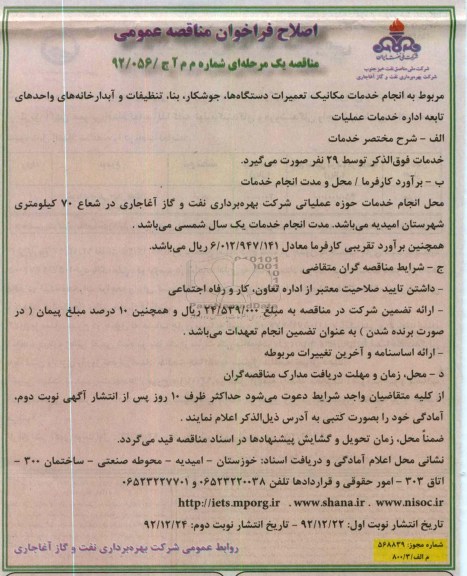 اصلاح فراخوان مناقصه عمومی
مناقصه یک مرحله‌ای شماره م م آ ج /۹۲/۰۵۶
شرکت ملی مناطق نفت خیز جنوب
شرکت بهره‌برداری نفت و گاز آغاجاری
مربوط به انجام خدمات مکانیک تعمیرات دستگاه‌ها، جوشکار، بنا، تنظیفات و آبدارخانه‌های واحدهای
تابعه اداره خدمات عملیات
الف – شرح مختصر خدمات
خدمات فوق‌الذکر توسط ۲۹ نفر صورت می‌گیرد.
ب – برآورد کارفرما / محل و مدت انجام خدمات
محل انجام خدمات حوزه عملیاتی شرکت بهره‌برداری نفت و گاز آغاجاری در شعاع ۷۰ کیلومتری
شهرستان امیدیه می‌باشد. مدت انجام خدمات یک سال شمسی می‌باشد .
همچنین برآورد تقریبی کارفرما معادل ۶/۰۱۲/۹۴۷/۱۴۱ ریال می‌باشد.
ج – شرایط مناقصه گران متقاضی
– داشتن تایید صلاحیت معتبر از اداره تعاون، کار و رفاه اجتماعی
– ارائه تضمین شرکت در مناقصه به مبلغ ۲۴/۵۳۹/۰۰۰ ریال و همچنین ۱۰ درصد مبلغ پیمان ( در
صورت برنده شدن ) به عنوان تضمین انجام تعهدات می‌باشد .
– ارائه اساسنامه و آخرین تغییرات مربوطه
د – محل، زمان و مهلت دریافت مدارک مناقصه‌گران
از کلیه متقاضیان واجد شرایط دعوت می‌شود حداکثر ظرف ۱۰ روز پس از انتشار آگهی نوبت دوم،
آمادگی خود را بصورت کتبی به آدرس ذیل‌الذکر اعلام نمایند .
ضمناً محل، زمان تحویل و گشایش پیشنهادها در اسناد مناقصه قید می‌گردد.
نشانی محل اعلام آمادگی و دریافت اسناد: خوزستان – امیدیه – محوطه صنعتی – ساختمان ۳۰۰ –
اتاق ۳۰۳ – امور حقوقی و قراردادها تلفن ۰۶۵۲۳۲۲۰۰۳۸ و ۰۶۵۲۳۲۲۷۷۰۱
http://iets.mporg.ir . www.shana.ir . www.nisoc.ir
تاریخ انتشار نوبت اول: ۹۲/۱۲/۲۲ – تاریخ انتشار نوبت دوم: ۹۲/۱۲/۲۴
روابط عمومی شرکت بهره‌برداری نفت و گاز آغاجاری
شماره مجوز: ۵۶۸۸۳۹
م الف/۸۰۰/۳